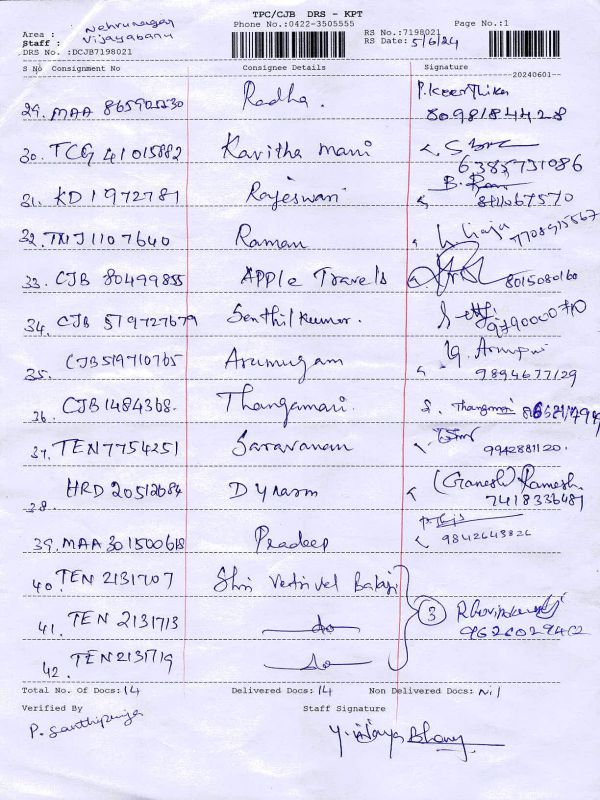 TPC/CJB DRS - KPT
Phone No.:0422-3505555 Page No.:1
Area : Nehrunagar
Staff : Vijayabanu
RS No.:7198021
RS Date: 5/6/24
DRS No. :DCJB7198021
S No Consignment No Consignee Details Signature
20240601
29. MAA Radha. P.Keerthika
8098184428
30. TCG 41015882 Kavitha mani
6385731086
31. KD1972781 Rajeswari
32. TMJ1107640 Raman
33. CJB 80499855 APPle Travels 8015080160
34. CJB 519727679 Senthilkumar.
9790000710
35. CJB519710765 Arumugam
9894677129
36. CJB1484368. Thangamari. S. Thangamari
37. TEN7754251 Saravanan 9942881120.
38. HRD 20512684 (Ganesh) Ramesh.
7418336481
39. MAA 301500618 Pradeep 9842643826
40. TEN 2131707 Shri Vetrivel Balaji
41. TEN 2131713 do 3
9626029402
42. TEN 2131719 do
Total No. Of Docs: 14 Delivered Docs: 14 Non Delivered Docs: Nil
Verified By Staff Signature